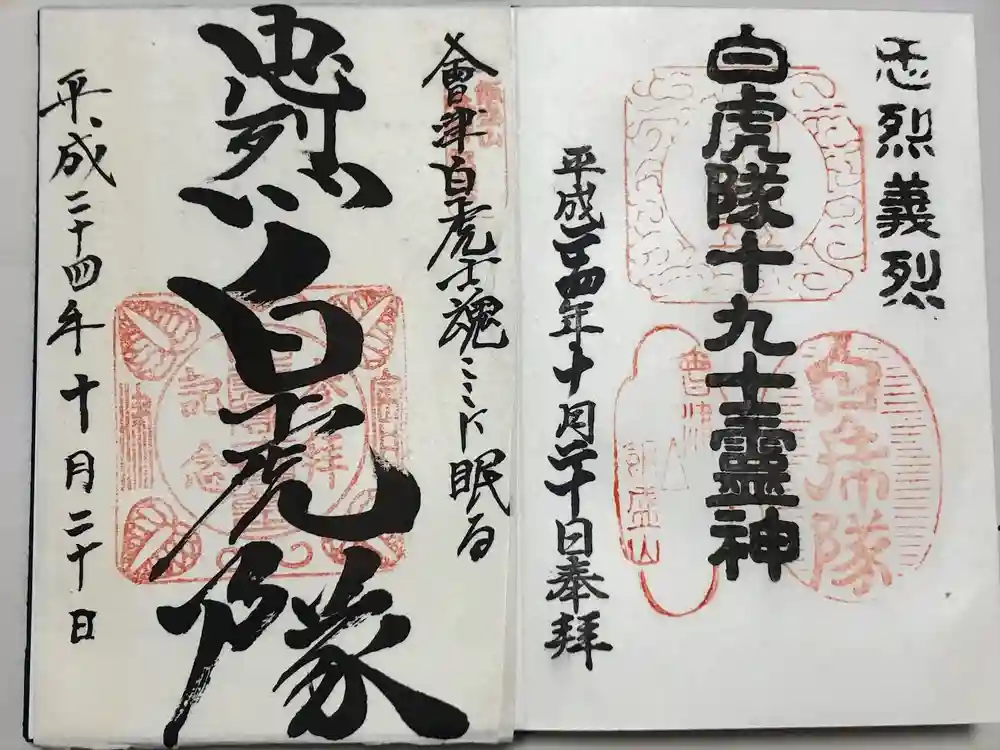 忠烈義烈
白虎隊十九士霊神
平成廿四年十月二十日奉拝
白虎隊
會津
飯盛山
會津白虎士魂ここに眠る
忠烈
白虎隊
参拝
記念
平成二十四年十月二十日